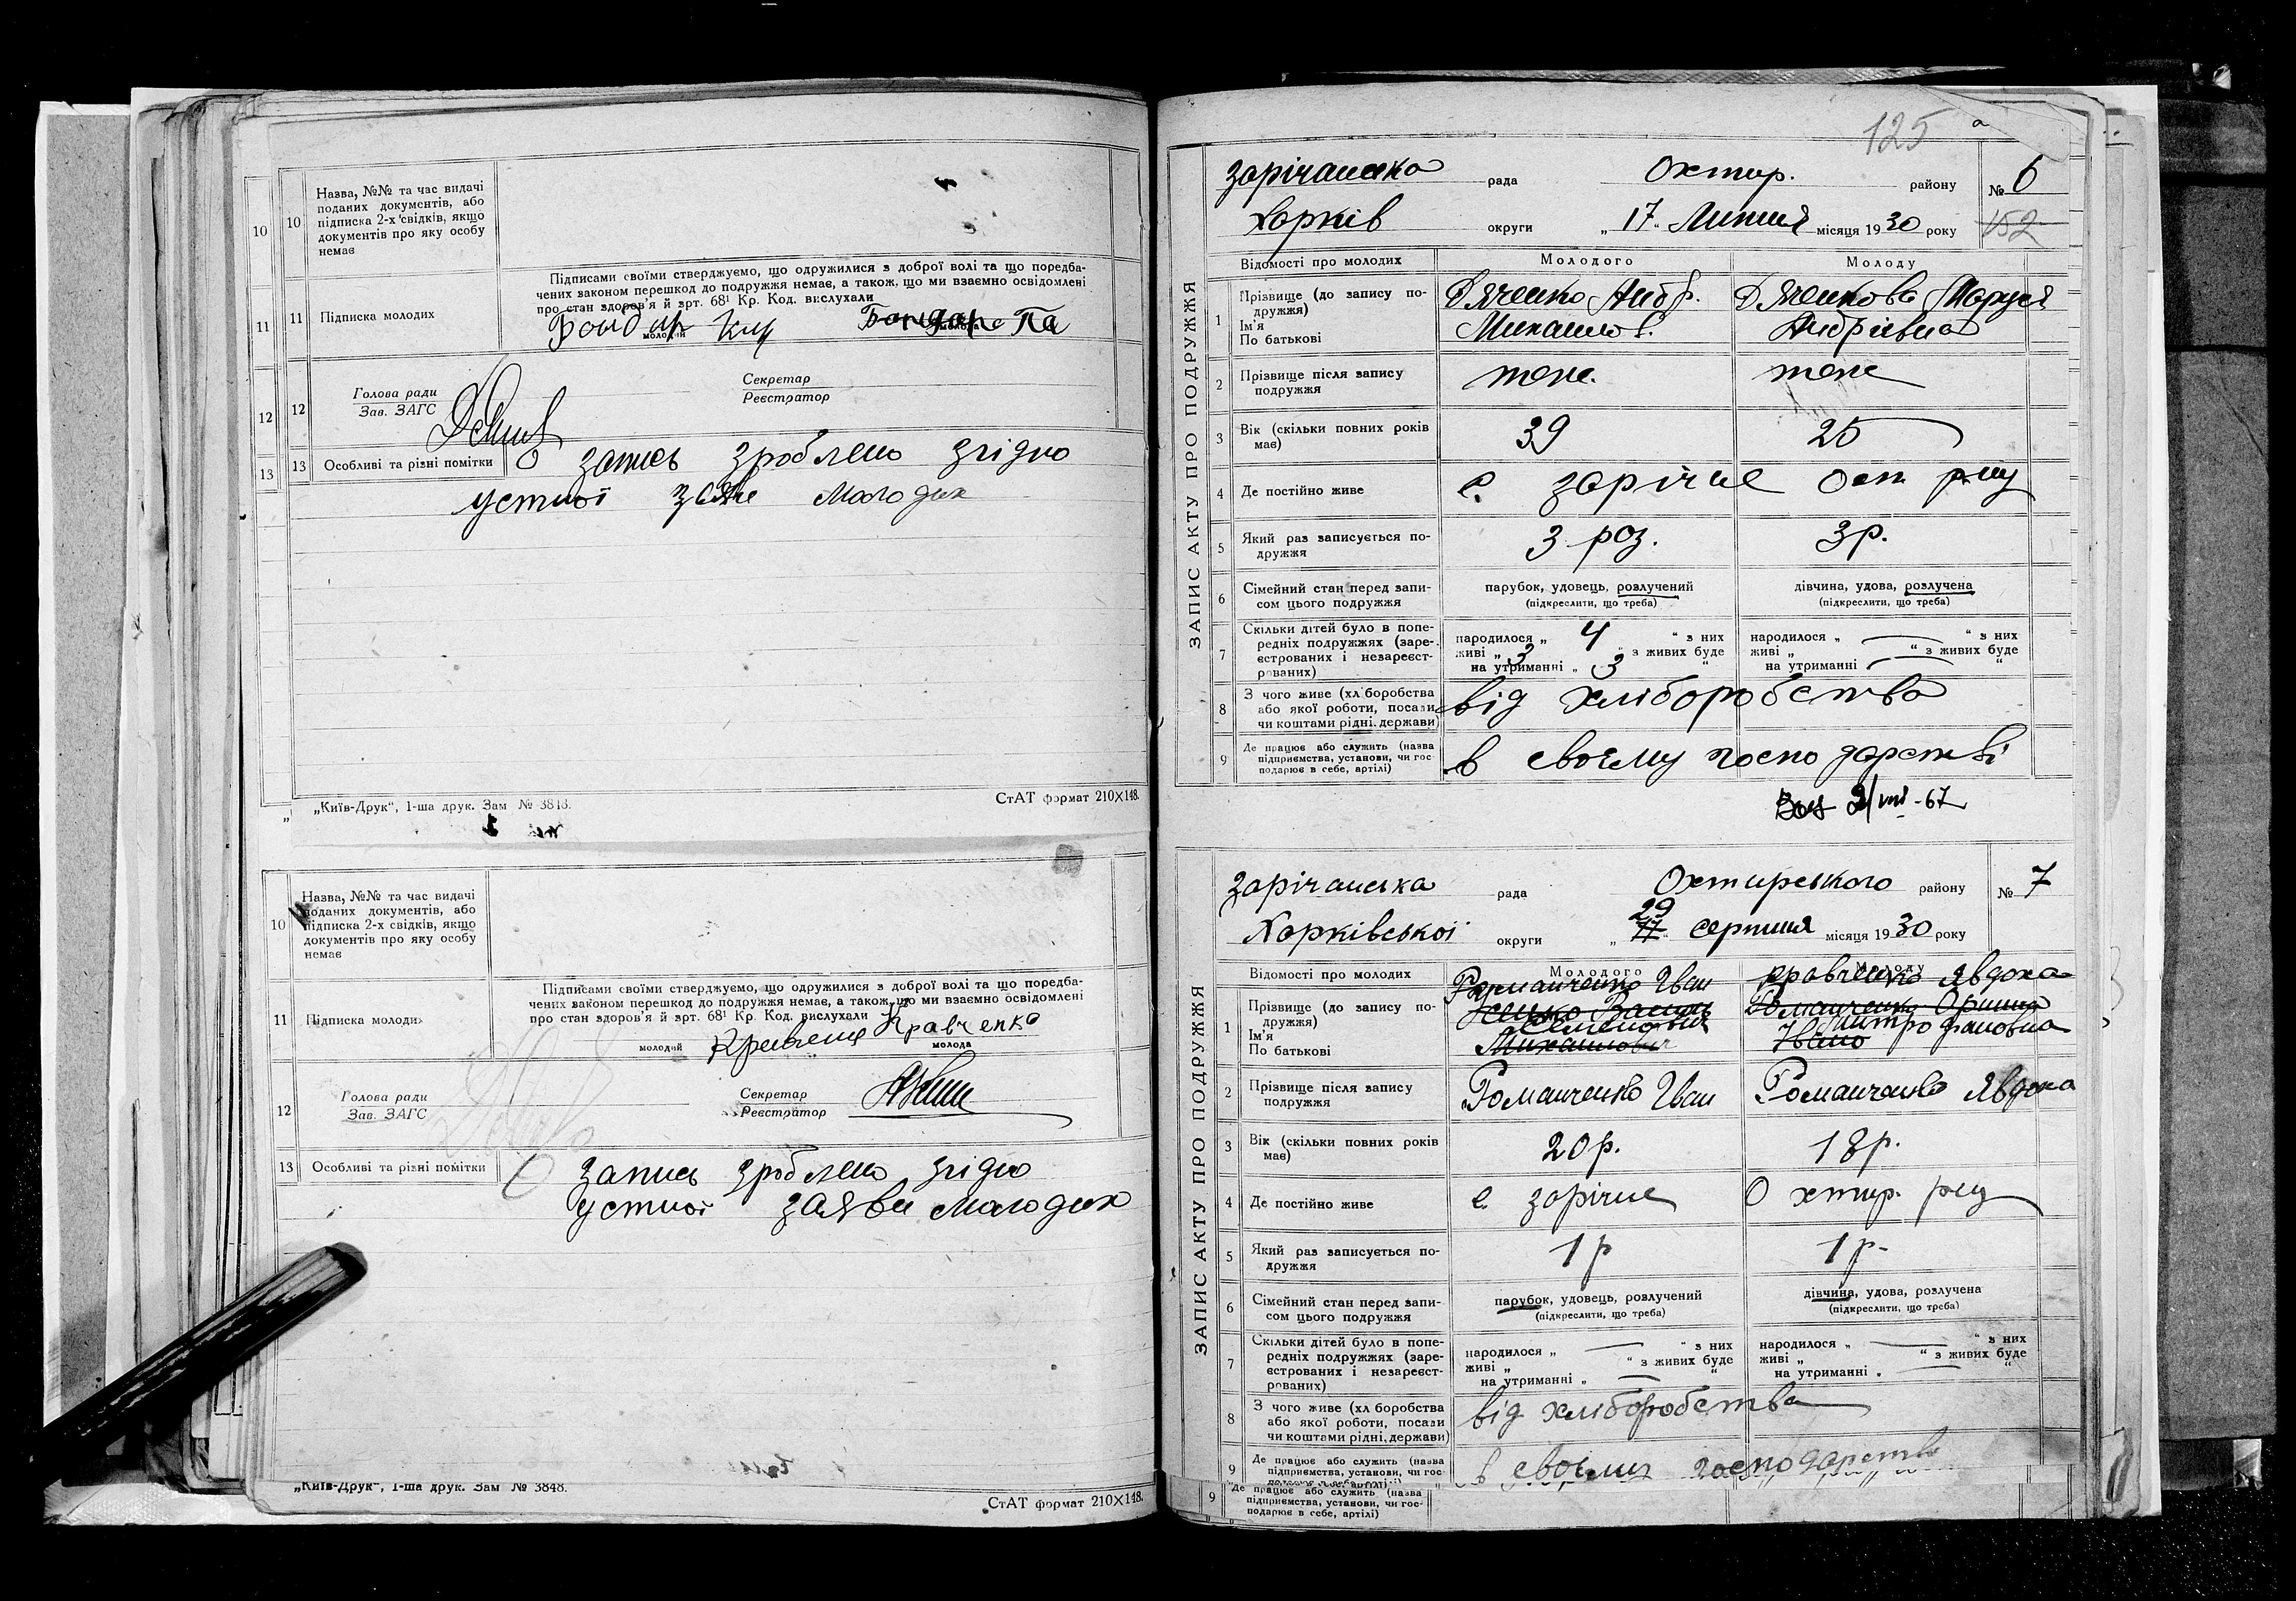 10 10 Назва, №№ та час видачі
поданих документів, або
підписка 2-х свідків, якщо
документів про яку особу
немає
Підписами своїми стверджуємо, що одружилися з доброї волі та що поредба-
чених законом перешкод до подружжя немає, а також, що ми взаємно освідомлені
про стан здоров'я й зрт. 68¹ Кр. Код. вислухали
11 11 Підписка молодих
молодий
12 12 Голова ради
Зав. ЗАГС
Секретар
Реєстратор
13 13 Особливі та різні помітки
запись зроблено згідно
устної заяве молодих
„Київ-Друк“, 1-ша друк. Зам № 3848.
СтАТ формат 210X148.
10 Назва, №№ та час видачі
поданих документів, або
підписка 2-х свідків, якщо
документів про яку особу
немає
Підписами своїми стверджуємо, що одружилися з доброї волі та що поредба-
чених законом перешкод до подружжя немає, а також, що ми взаємно освідомлені
про стан здоров'я й зрт. 68¹ Кр. Код. вислухали
11 Підписка молодих
Кравченко
молодий
молода
12 Голова ради
Зав. ЗАГС
Секретар
Реєстратор
13 Особливі та різні помітки
запись зроблено згідно
устної заяви молодих
„Київ-Друк“, 1-ша друк. Зам № 3848.
СтАТ формат 210X148.
125
ЗАПИС АКТУ ПРО ПОДРУЖЖЯ
зарічанська рада Охтир. району № 6
Харків округи „17“ Липня місяця 1930 року
152
Відомості про молодих Молодого Молоду
1 Прізвище (до запису по-
дружжя)
Ім'я
По батькові
Дяченко Андр.
Михайлов.
Дяченкова Маруся
Андріівна
2 Прізвище після запису
подружжя
теж. теж
3 Вік (скільки повних років
має)
39 25
4 Де постійно живе
с. зарічне Охт р-ну
5 Який раз записується по-
дружжя
3 роз. 3р.
6 Сімейний стан перед запи-
сом цього подружжя
парубок, удовець, розлучений
(підкреслити, що треба)
дівчина, удова, розлучена
(підкреслити, що треба)
7 Скільки дітей було в попе-
редніх подружжях (заре-
єстрованих і незареєст-
рованих)
народилося „ 4 “ з них
живі „ 3 “ з живих буде
на утриманні „ 3 “
народилося „ — “ з них
живі „ — “ з живих буде
на утриманні — “
8 З чого живе (хліборобства
або якої роботи, посади
чи коштами рідні, держави)
від хліборобства
9 Де працює або служить (назва
підприємства, установи, чи гос-
подарює в себе, артілі)
в своєму господарстві
VIII-67
ЗАПИС АКТУ ПРО ПОДРУЖЖЯ
зарічанська рада Охтирського району № 7
Харківської округи „29“ серпня місяця 1930 року
Відомості про молодих Молодого Молоду
1 Прізвище (до запису по-
дружжя)
Ім'я
По батькові
Романченко Іван
Семенович
Михайлович
Кравченко Явдоха
Романченко Орина
Митрофановна
2 Прізвище після запису
подружжя
Романченко Іван
Романченко Явдоха
3 Вік (скільки повних років
має)
20р. 18р.
4 Де постійно живе
с зарічне Охтир. р-ну
5 Який раз записується по-
дружжя
1р 1р-
6 Сімейний стан перед запи-
сом цього подружжя
парубок, удовець, розлучений
(підкреслити, що треба)
дівчина, удова, розлучена
(підкреслити, що треба)
7 Скільки дітей було в попе-
редніх подружжях (заре-
єстрованих і незареєст-
рованих)
народилося „ — “ з них
живі „ “ з живих буде
на утриманні „ — “
народилося „ — “ з них
живі „ “ з живих буде
на утриманні „ — “
8 З чого живе (хліборобства
або якої роботи, посади
чи коштами рідні, держави)
від хліборобства
9 Де працює або служить (назва
підприємства, установи, чи гос-
в своєму господарстві
9 Де працює або служить (назва
підприємства, установи, чи гос-
подарює в себе, артілі)